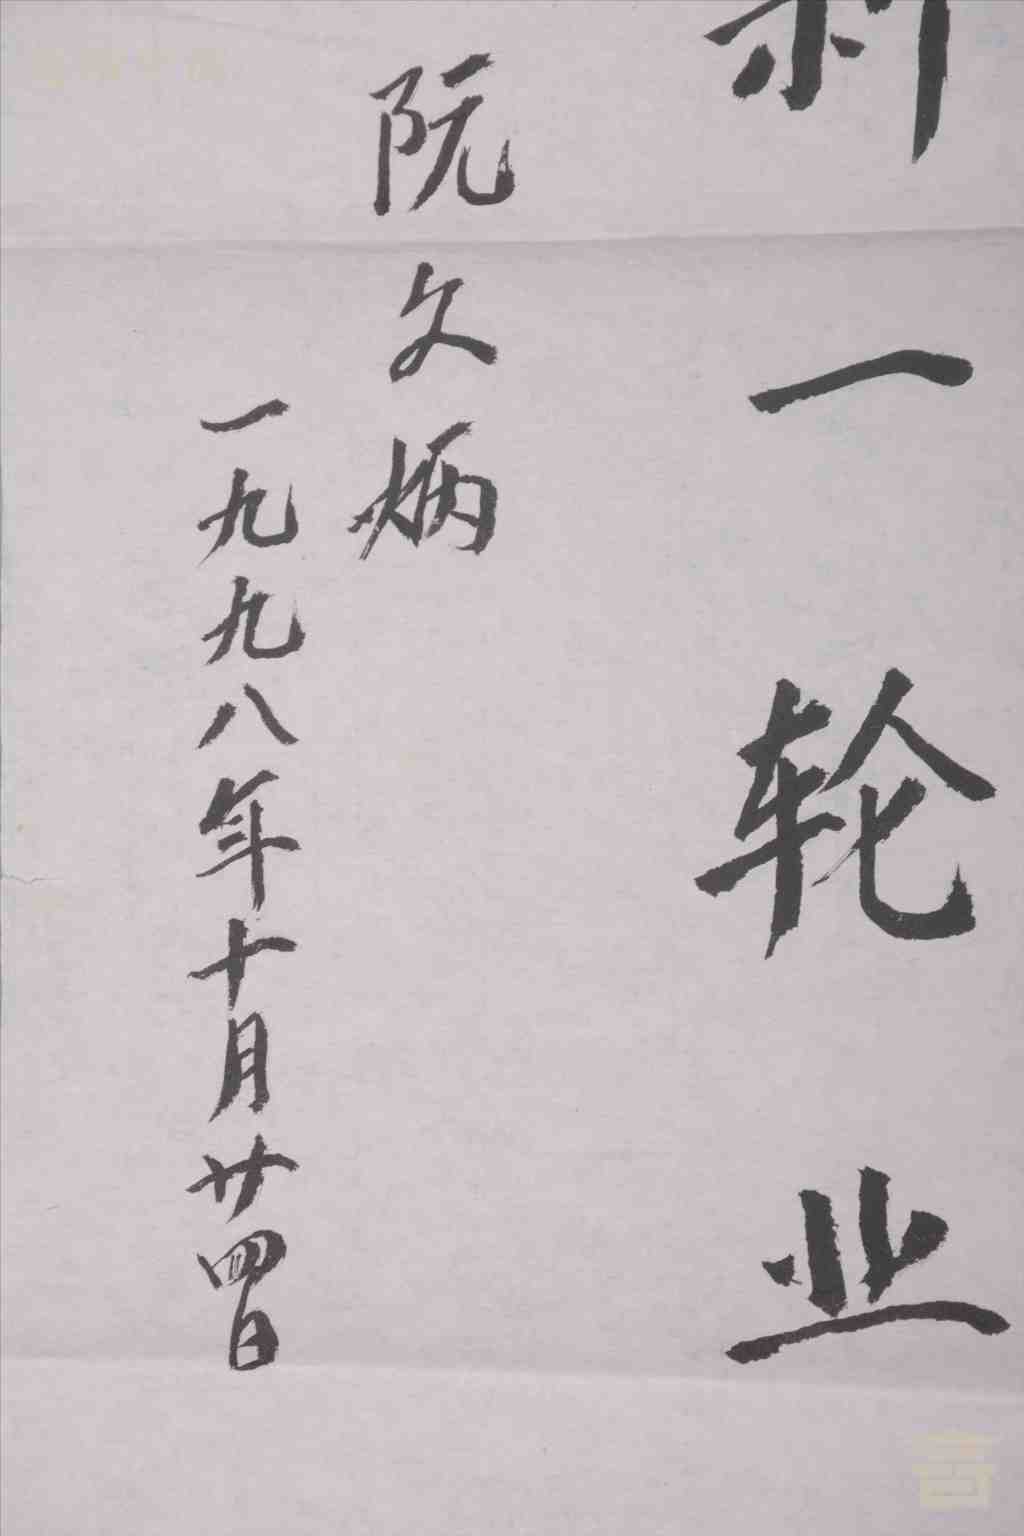 一轮业
阮文炳
一九九八年十月廿四日